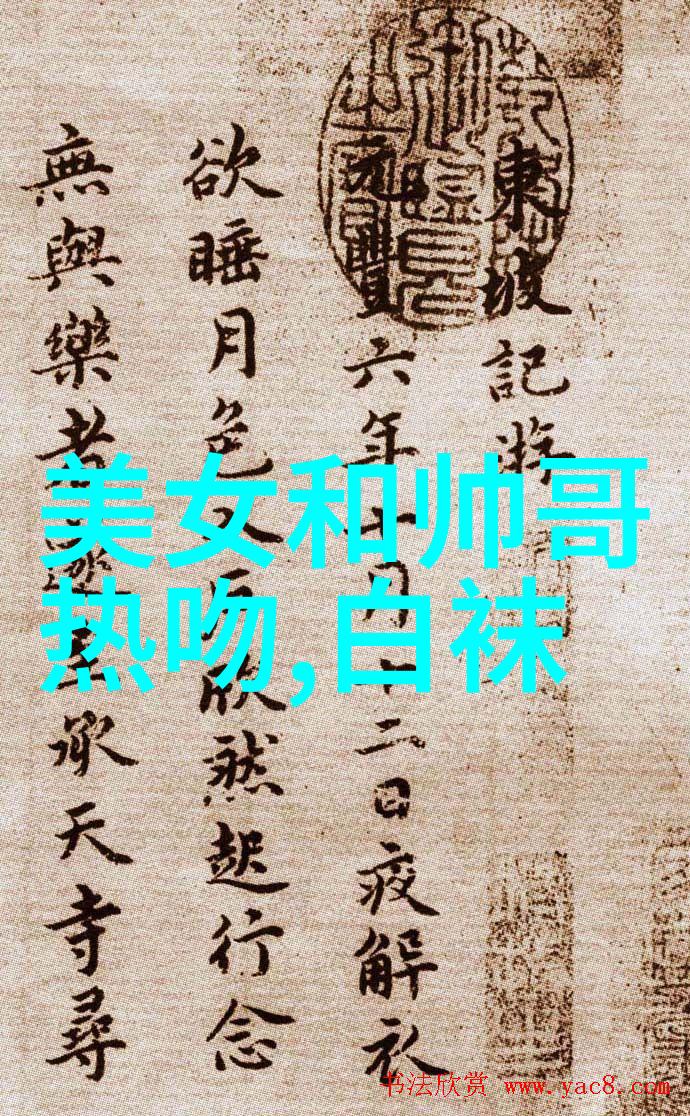 東坡記游
元豐六年十月十二日夜解衣
欲睡月色入戶欣然起行念
無與樂者遂至承天寺尋
美女和帅哥
热吻,白袜
书法欣赏 www.yac8.com